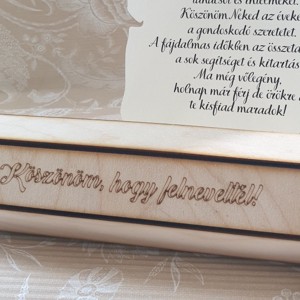 tanácsot és intelmeket.
Köszönöm Neked az éveke
a gondoskodó szeretetet.
A fájdalmas időkben az összeta
a sok segítséget és kitartás
Ma még vőlegény,
holnap már férj de örökre a
te kisfiad maradok!
Köszönöm, hogy felneveltél!